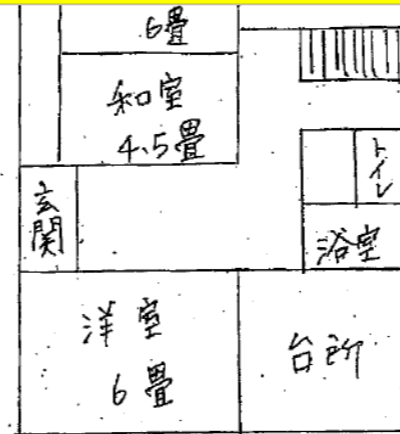 6畳
和室
4.5畳
トイレ
玄関
浴室
洋室
6畳
台所